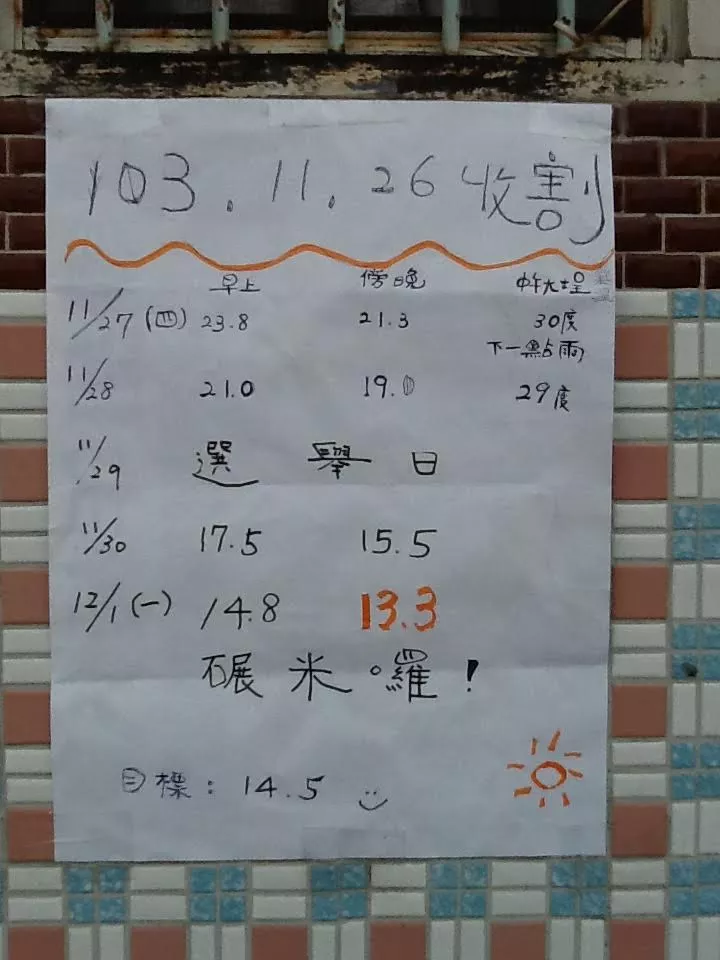 103.11.26 收割
早上 傍晚 中午大埕
11/27 (四) 23.8 21.3 30度
下一點雨
11/28 21.0 19.0 29度
11/29 選舉日
11/30 17.5 15.5
12/1 (一) 14.8 13.3
碾米囉!
目標: 14.5